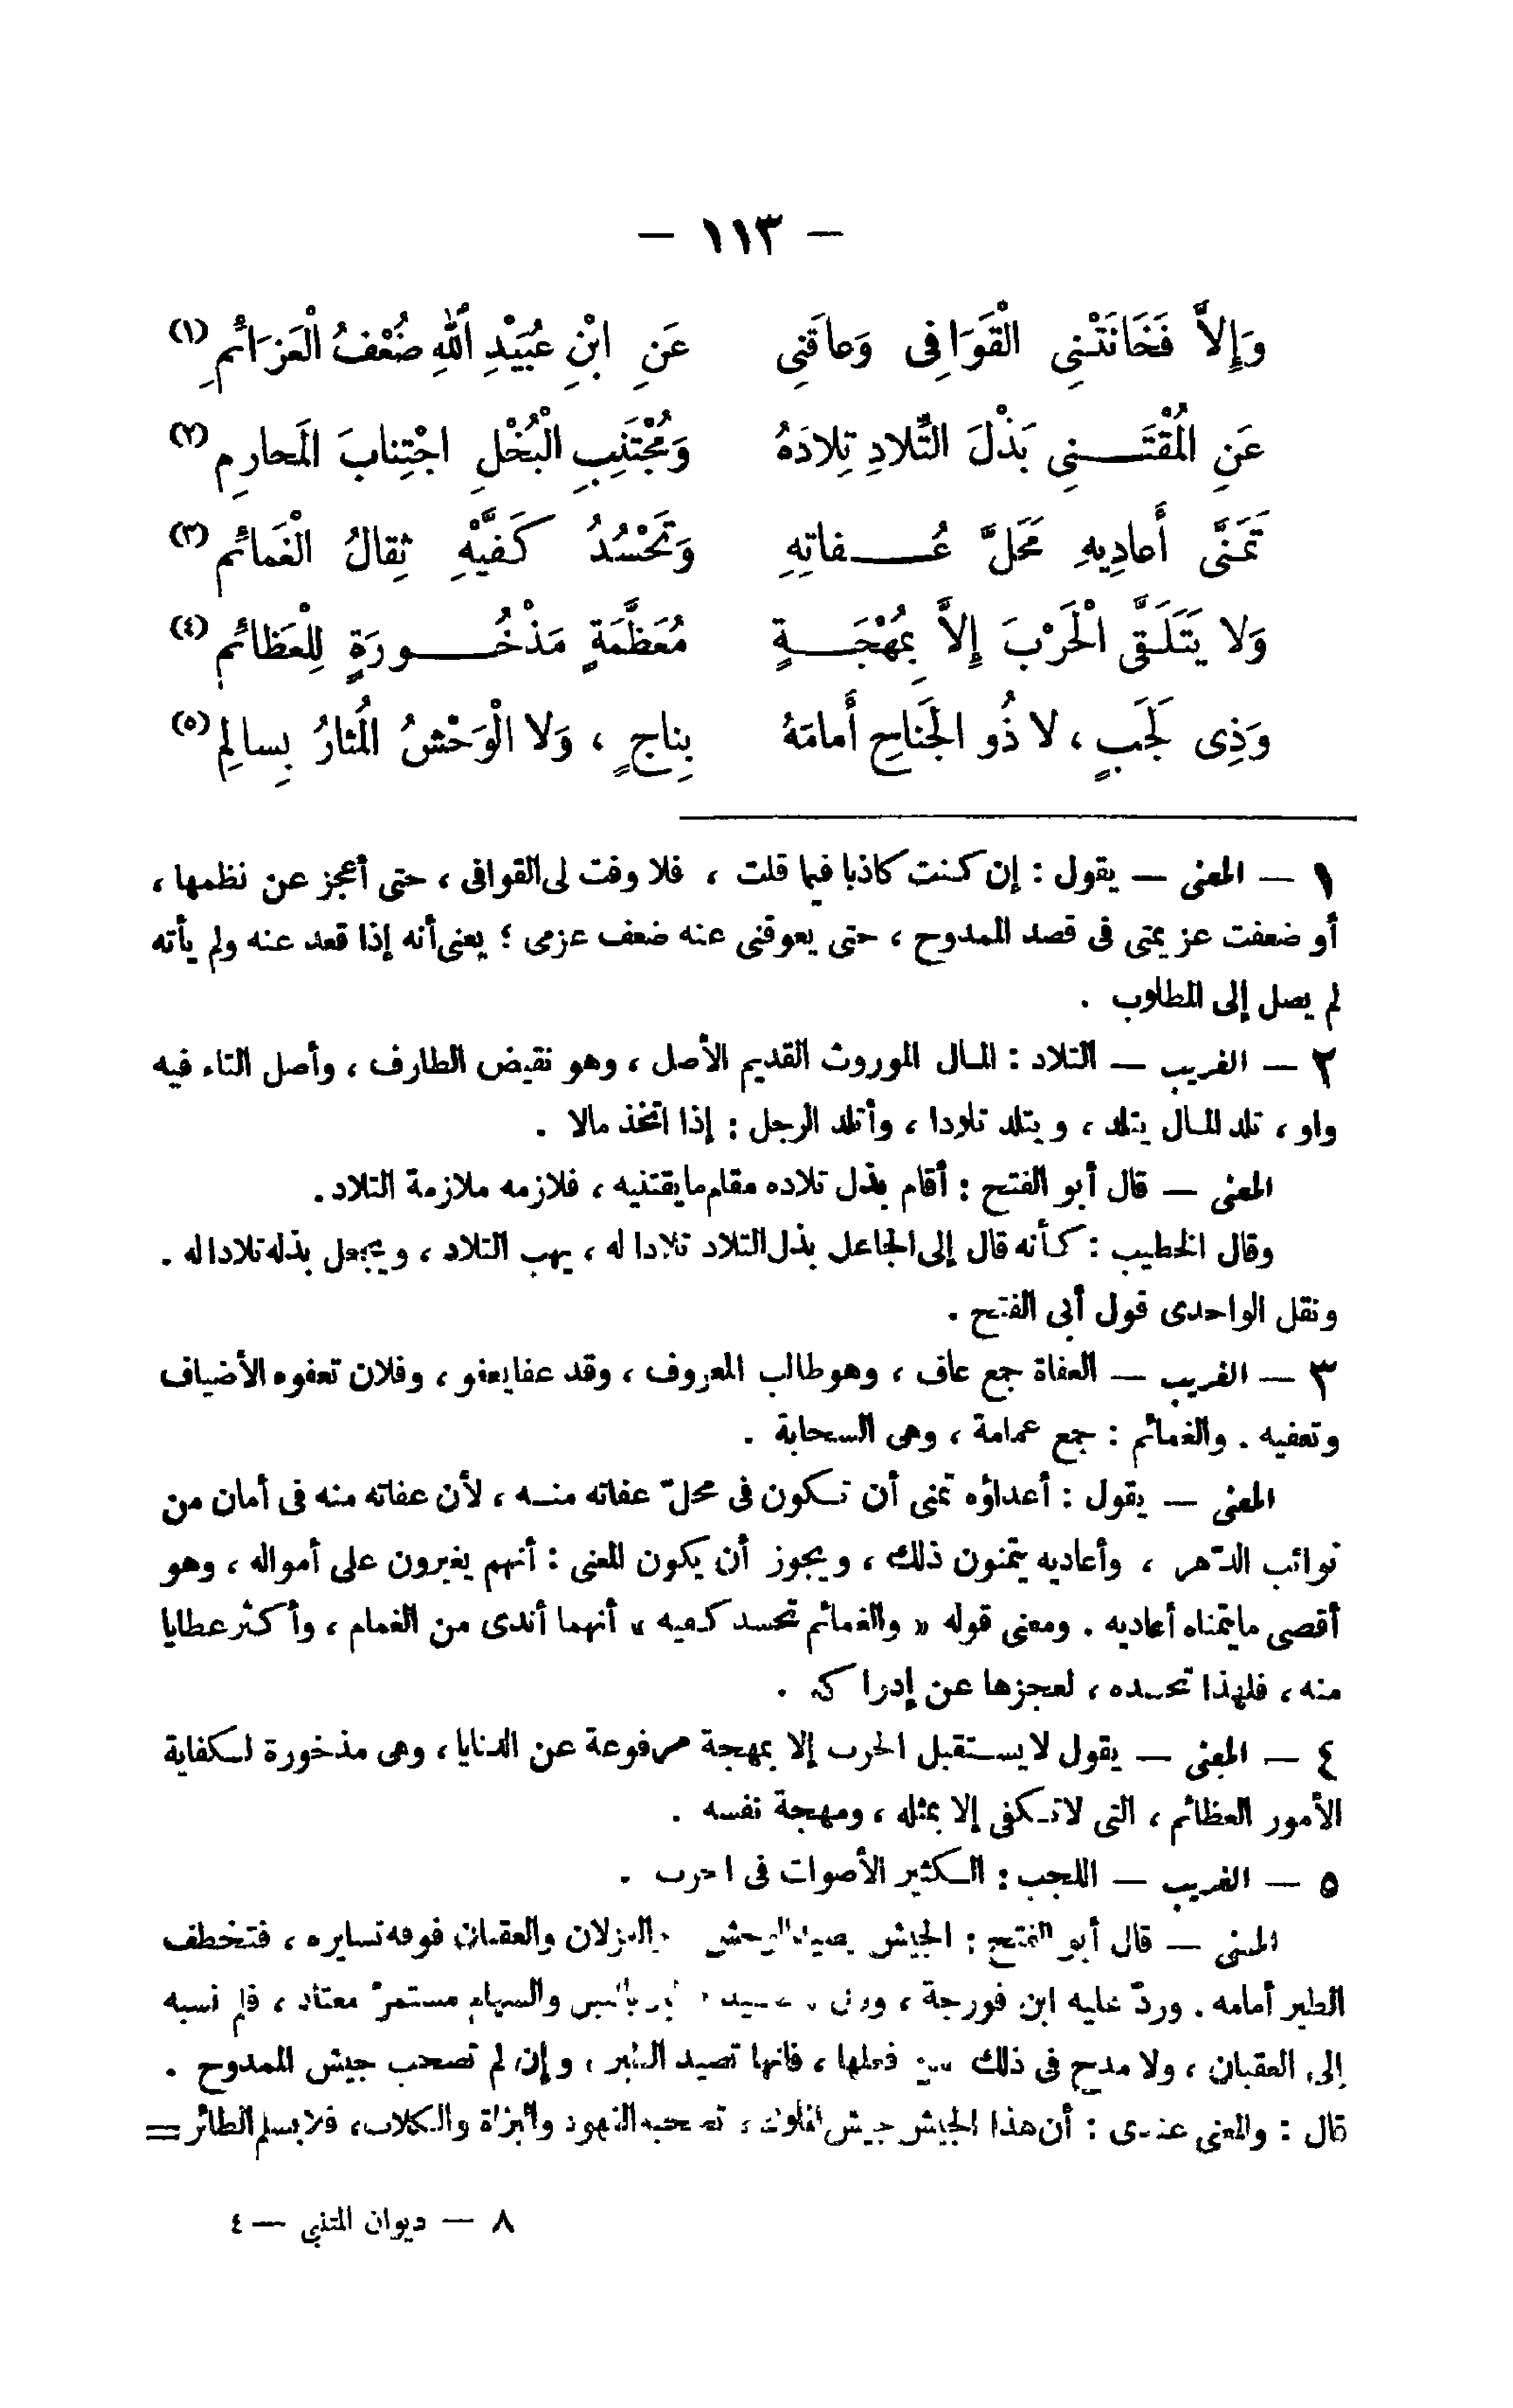 — ١١٣ —
وَإِلاَّ فَخَانَتْنِى الْقَوَافِى وَعاقَنِى عَنِ ابْنِ عُبَيْدِ اللهِ ضُعْفُ الْعَزَائمِ (١)
عَنِ الْمُقْتَـــنِى بَذْلَ التِّلادِ تِلادَهُ وَمُجْتَنِبِ الْبُخْلِ اجْتِنابَ الْمَحارِمِ (٢)
تَمَنَّى أَعادِيهِ مَحَلَّ عُـــفاتِهِ وَتَحْسُدُ كَفَّيْهِ ثِقالُ الْغَمائمِ (٣)
وَلا يَتَلَقَّى الْحَرْبَ إِلاَّ بِمُهْجَـــةٍ مُعَظَّمَةٍ مَذْخُـــورَةٍ لِلْعَظائمِ (٤)
وَذِى لَجَبٍ ، لا ذُو الْجَناحِ أَمامَهُ بِناجٍ ، وَلا الْوَحْشُ الْمُثارُ بِسالِمِ (٥)
١ — المعنى — يقول : إن كنت كاذبا فيما قلت ، فلا وفت لى القوافى ، حتى أعجز عن نظمها ،
أو ضعفت عزيمتى فى قصد الممدوح ، حتى يعوقنى عنه ضعف عزمى ؛ يعنى أنه إذا قعد عنه ولم يأته
لم يصل إلى المطلوب .
٢ — الغريب — التلاد : المال الموروث القديم الأصل ، وهو نقيض الطارف ، وأصل التاء فيه
واو ، تلد المال يتلد ، ويتلد تلودا ، وأتلد الرجل : إذا اتخذ مالا .
المعنى — قال أبو الفتح : أقام بذل تلاده مقام ما يقتنيه ، فلازمه ملازمة التلاد .
وقال الخطيب : كأنه قال إلى الجاعل بذل التلاد تلادا له ، يهب التلاد ، ويجعل بذله تلادا له .
ونقل الواحدى قول أبى الفتح .
٣ — الغريب — العفاة جمع عاف ، وهو طالب المعروف ، وقد عفا يعفو ، وفلان تعفوه الأضياف
وتعفيه . والغمائم : جمع غمامة ، وهى السحابة .
المعنى — يقول : أعداؤه تمنى أن تكون فى محلّ عفاته منه ، لأن عفاته منه فى أمان من
نوائب الدّهر ، وأعاديه يتمنون ذلك ، ويجوز أن يكون المعنى : أنهم يغيرون على أمواله ، وهو
أقصى ما يتمناه أعاديه . ومعنى قوله « والغمائم تحسد كفيه » أنهما أندى من الغمام ، وأكثر عطايا
منه ، فلهذا تحسده ، لعجزها عن إدراكه .
٤ — المعنى — يقول لا يستقبل الحرب إلا بمهجة مرفوعة عن الدنايا ، وهى مذخورة لكفاية
الأمور العظائم ، التى لا تكفى إلا بمثله ، ومهجة نفسه .
٥ — الغريب — اللجب : الكثير الأصوات فى الحرب .
المعنى — قال أبو الفتح : الجيش يصيد الوحش والعقبان فوقه تسايره ، فتخطف
الطير أمامه . وردّ عليه ابن فورجة ، والسهام مستمرّ معتاد ، فلم نسبه
إلى العقبان ، ولا مدح فى ذلك فعلها ، فانها تصيد الطير ، وإن لم تصحب جيش الممدوح .
قال : والمعنى عندى : أن هذا الجيش جيش الملوك ، تصحبه الفهود والبزاة والكلاب ، فلا يسلم الطائر =
٨ — ديوان المتنبي — ٤